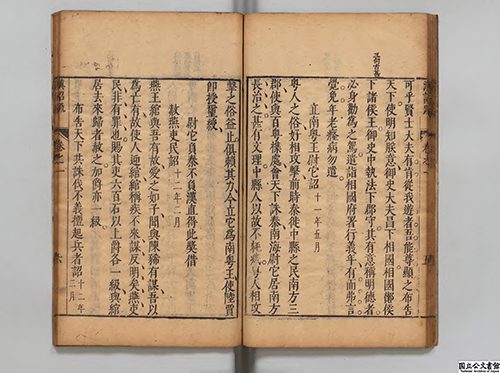 可乎賢士大夫有肯從我遊者吾能尊顯之布告
天下使明知朕意御史大夫昌下相國相國酇侯
下諸侯王御史中執法下郡守其有意稱明德者
必身勸為之駕遣詣相國府署行義年有而弗言
覺免年老癃病勿遣
立南粤王尉它詔 十一年五月
粤人之俗好相攻擊前時秦徙中縣之民南方三
郡使與百粤雜處會天下誅秦南海尉它居南方
長治之甚有文理中縣人以故不耗減粤人相攻
擊之俗益止俱賴其力今立它為南粤王使陸賈
即授璽綬
尉它負秦不負漢直得此獎借
赦燕吏民詔 十二年二月
燕王綰與吾有故愛之如子聞與陳豨有謀吾以
為亡有故使人迎綰綰稱疾不來謀反明矣燕吏
民非有罪也賜其吏六百石以上爵各一級與綰
居去來歸者赦之加爵亦一級
布告天下共誅伐不義擅起兵者詔 十二年三月
漢詔疏 卷之一 六
国立公文書館
National Archives of Japan